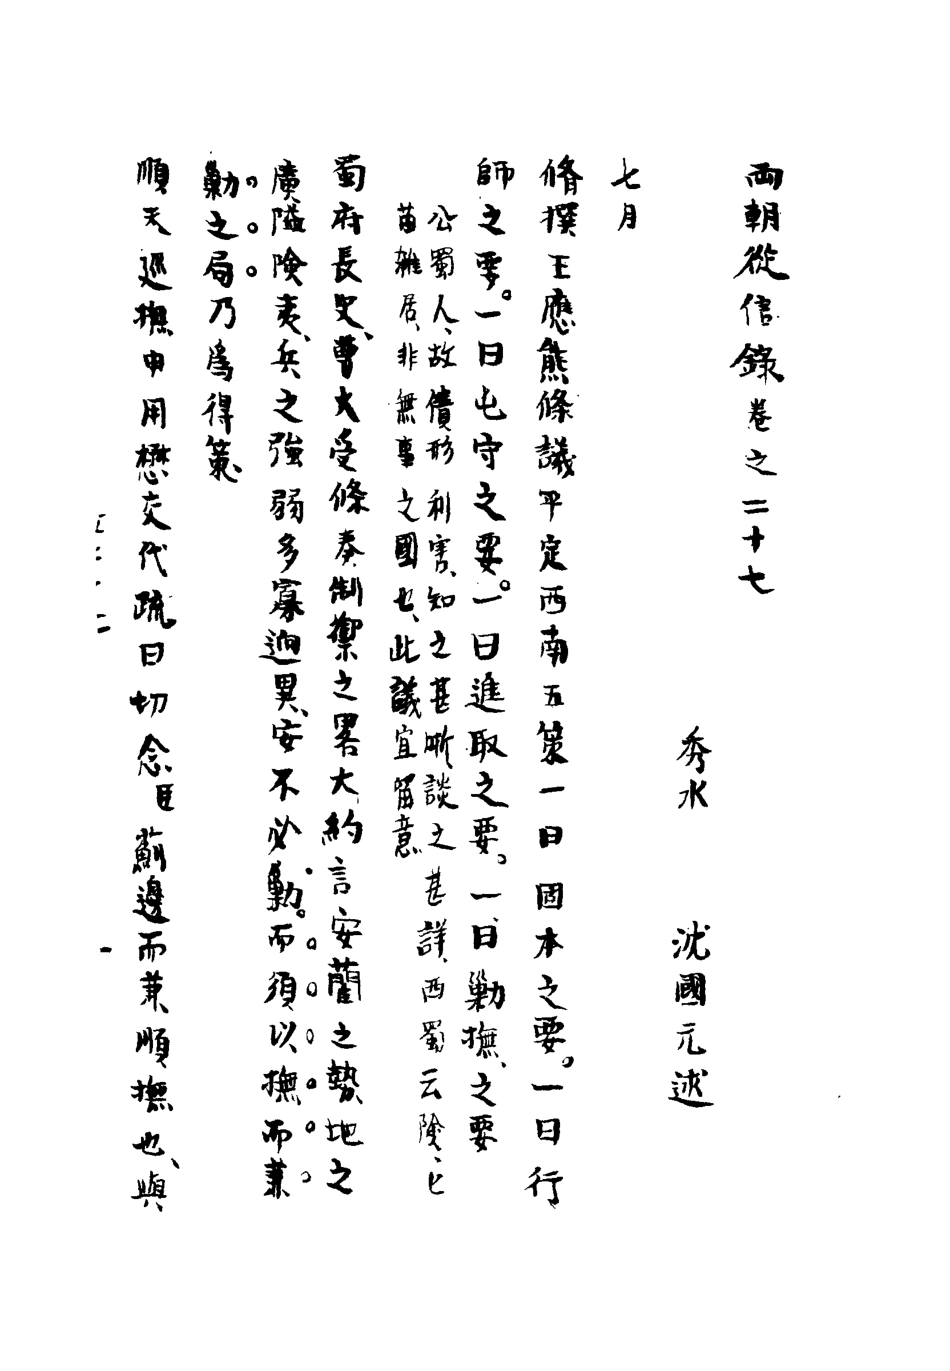 兩朝從信錄卷之二十七
秀水 沈國元述
七月
脩撰王應熊條議平定西南五策一曰固本之要。一曰行
師之要。一曰屯守之要。一曰進取之要。一曰勦撫、之要
公蜀人、故僙形利害、知之甚晣談之甚詳、西蜀云險、七
苗雜居、非無事之國也、此議宜留意
蜀府長史、曹大受條奏制禦之畧大約言安藺之勢、地之
廣隘險夷、兵之強弱多寡逈異、安不必勦。而須以撫而兼
勦之局乃爲得策、
順天巡撫申用懋交代疏曰切念臣薊邊而兼順撫也、與
一